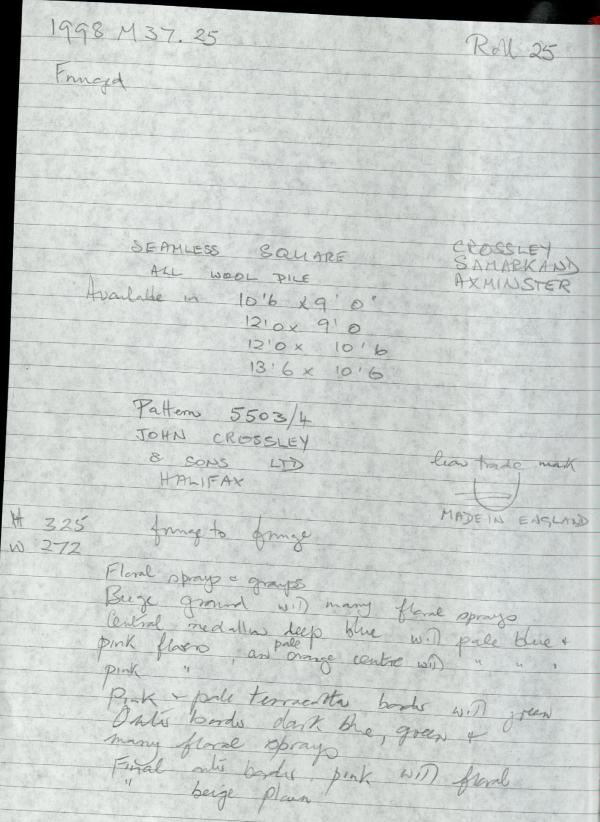 1998 M 37. 25
Roll 25
Fringed
SEAMLESS SQUARE
ALL WOOL PILE
CROSSLEY
SAMARKAND
AXMINSTER
Available in 10'6 x 9' 0"
12'0 x 9'0
12'0 x 10'6
13'6 x 10'6
Pattern 5503/4
JOHN CROSSLEY
& SONS LTD
HALIFAX
trade mark
MADE IN ENGLAND
Ht 325 fringe to fringe
W 272
Floral sprays &
Beige ground with many floral sprays
Central medallion deep blue with pale blue +
pink , an pale orange centre with " " "
pink "
Pink + pale terracotta border with green
border dark blue, green +
many floral sprays
Final border pink with floral
" beige plain